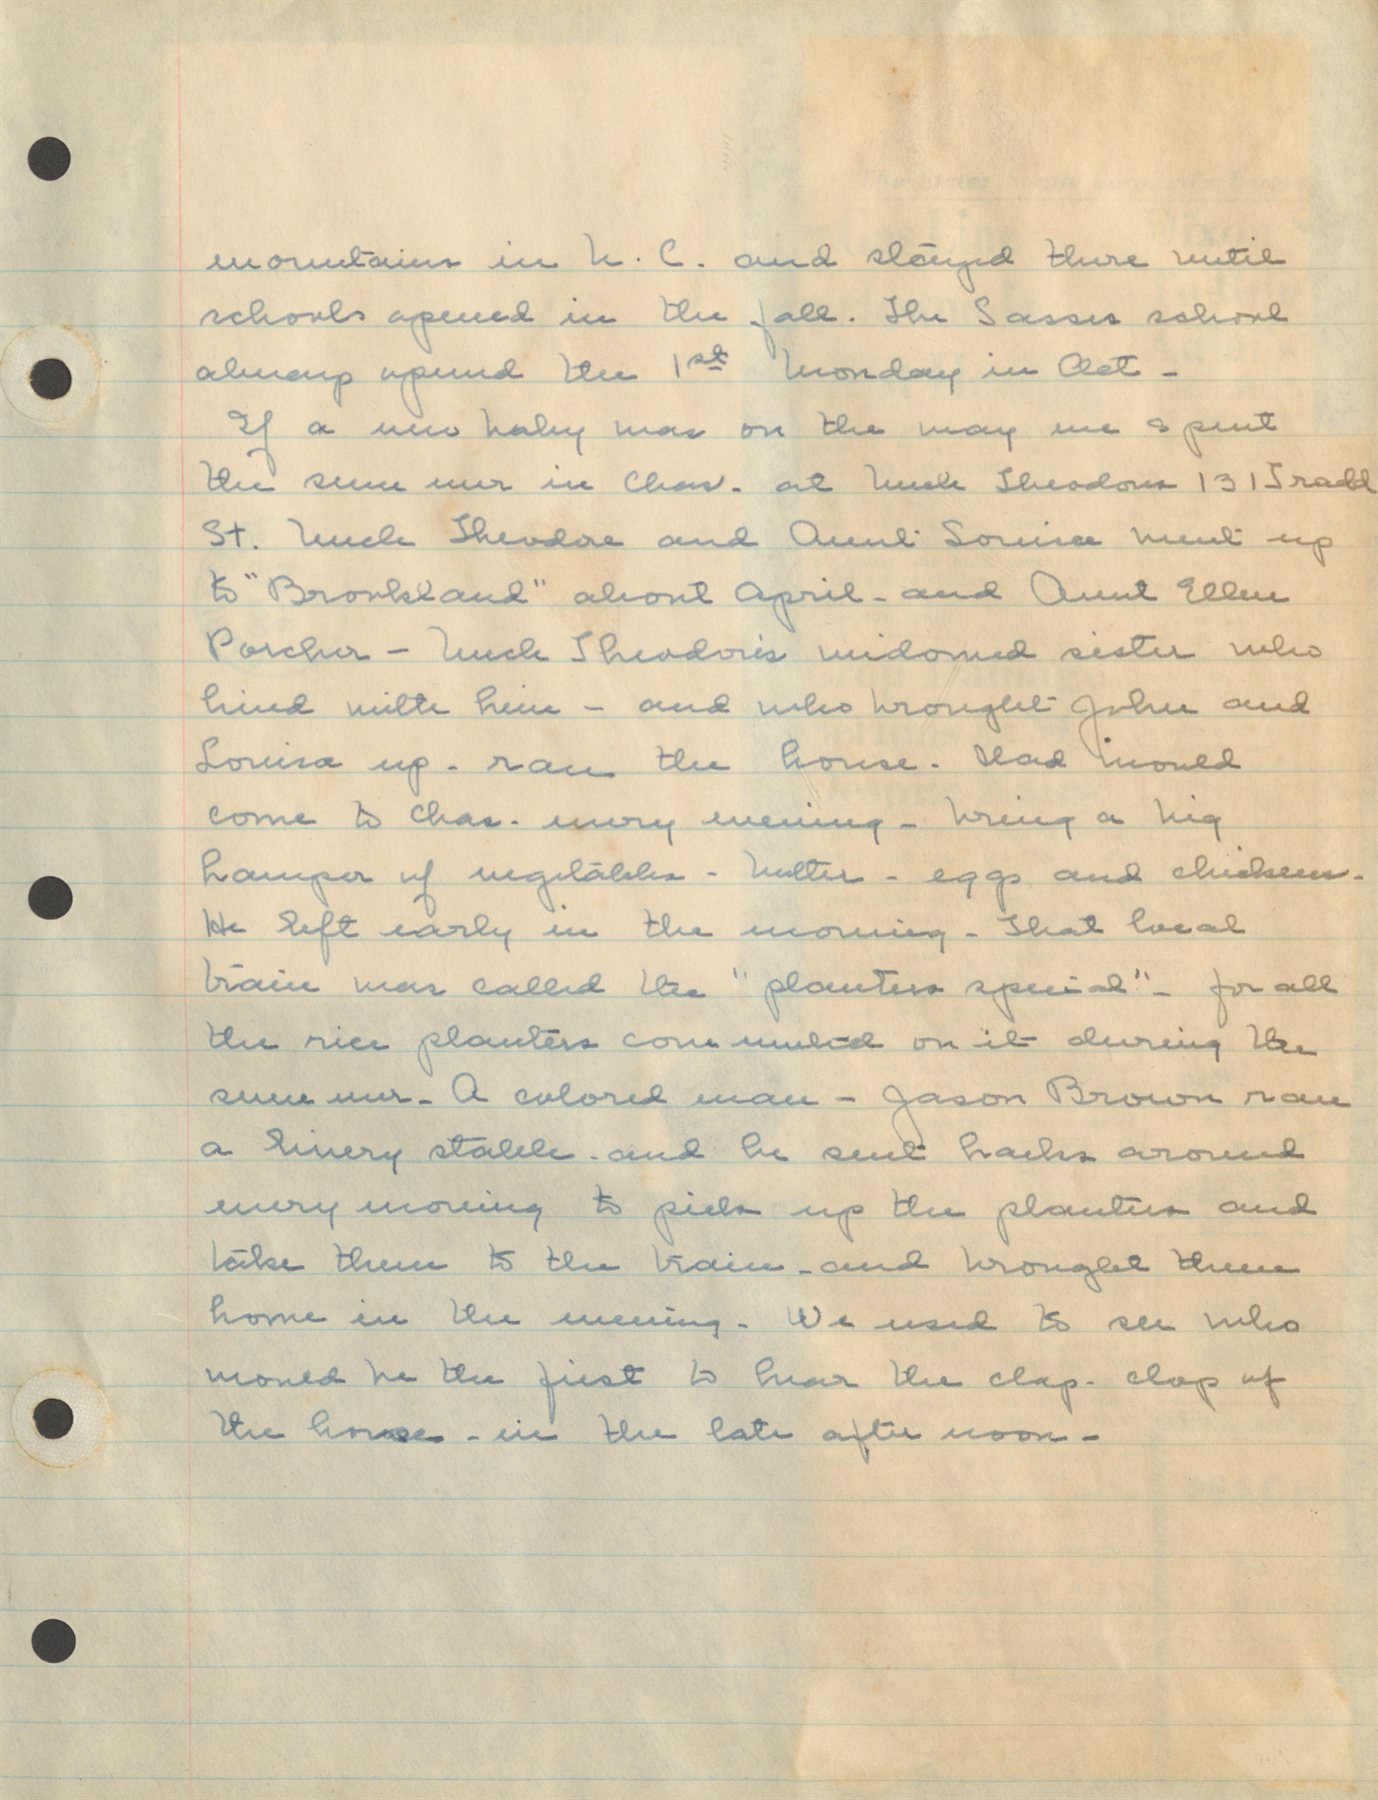 mountains in N. C. and stayed there until
schools opened in the fall. The Sasses school
always opened the 1st Monday in Oct -
If a new baby was on the way we spent
the summer in Chas. at Uncle Theodores 131 Tradd
St. Uncle Theodore and Aunt Louisa went up
to "Brookland" about April - and Aunt Ellen
Porcher - Uncle Theodore's widowed sister who
lived with him - and who brought John and
Louisa up - ran the house. Dad would
come to Chas. every evening - bring a big
hamper of vegetables - butter - eggs and chickens.
He left early in the morning - That local
train was called the "planters special" - for all
the rice planters commuted on it during the
summer - A colored man - Jason Brown ran
a livery stable - and he sent hacks around
every morning to pick up the planters and
take them to the train - and brought them
home in the evening - We used to see who
would be the first to hear the clap - clop of
the horses - in the late after noon -